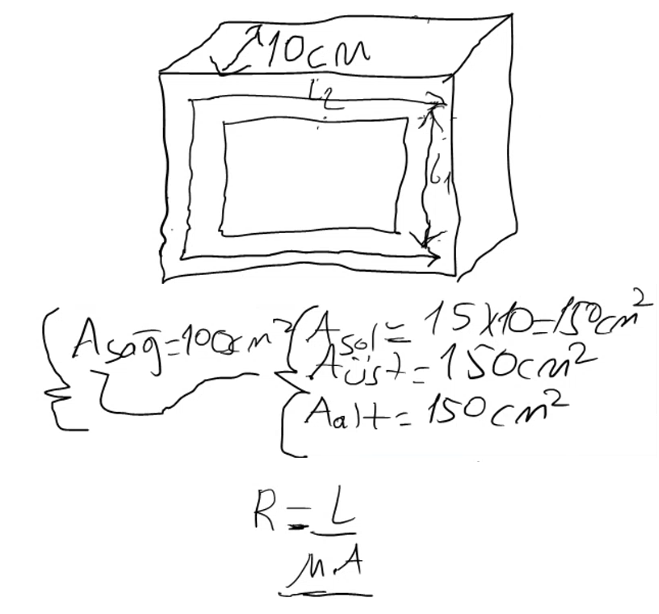 10cm
L2
L1
Asağ=100cm²
Asol= 15x10=150cm²
Aüst=150cm²
Aalt=150cm²
R=L
M.A